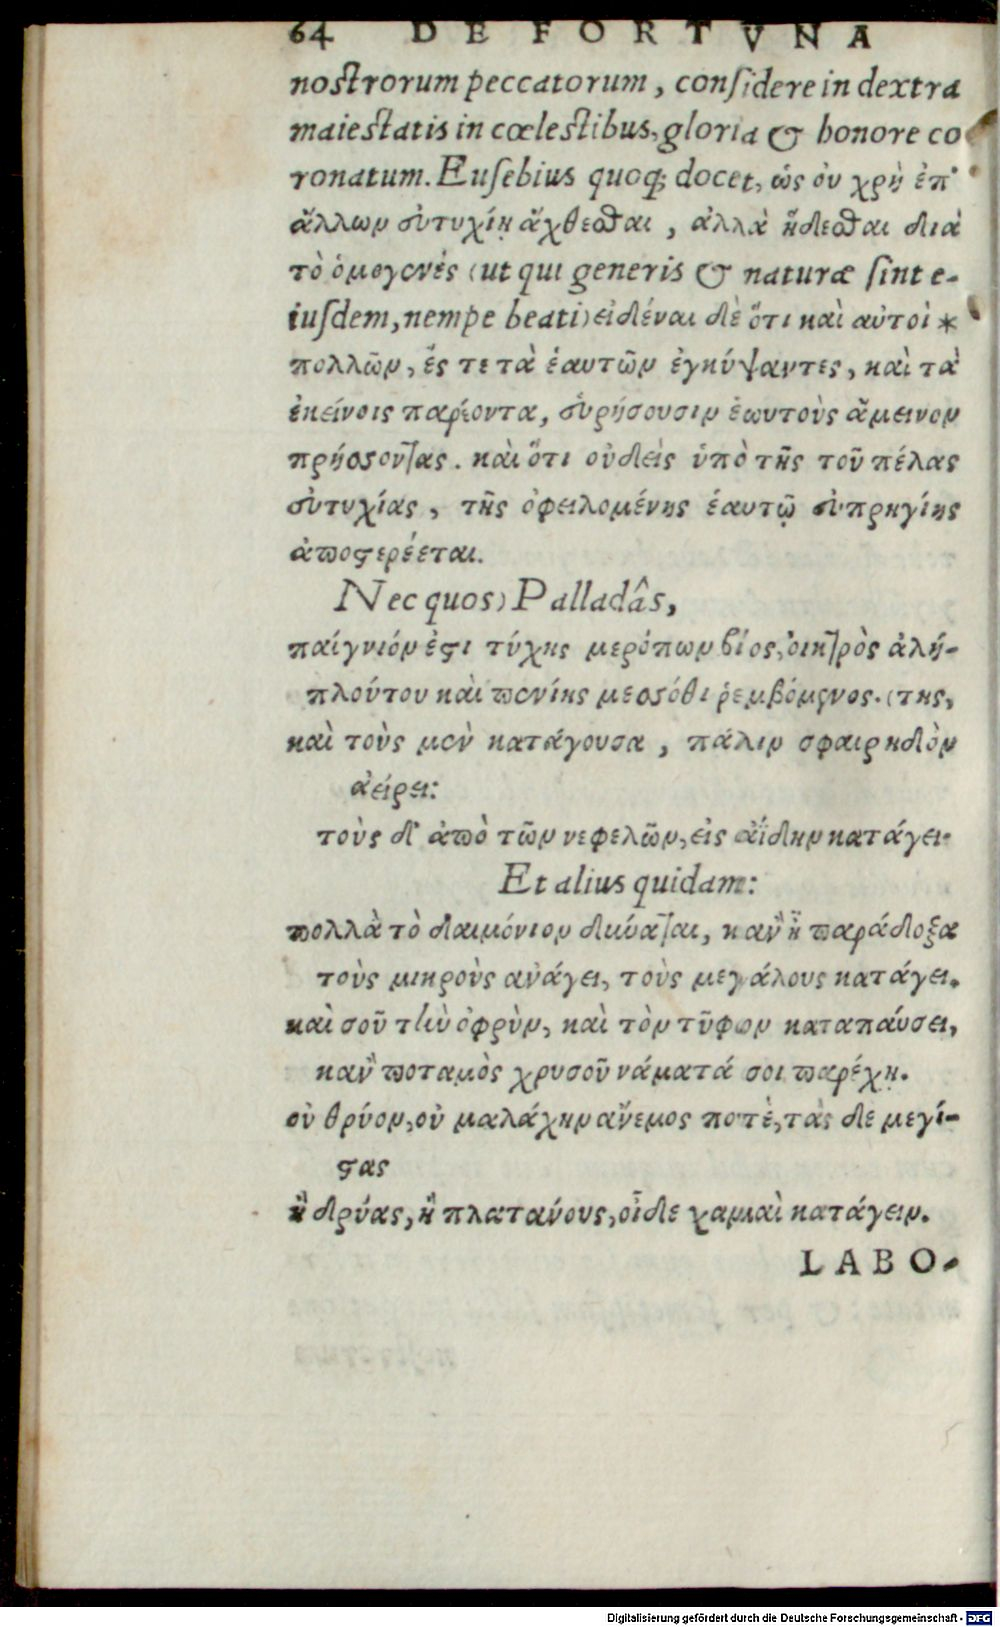 64 DE FORTVNA
nostrorum peccatorum, considere in dextra
maiestatis in cœlestibus, gloria & honore co
ronatum. Eusebius quoq; docet, ὡς ὀυ χρὴ ἐπ'
ἄλλων ἐυτυχίῃ ἄχθεσθαι, ἀλλὰ ἥδεσθαι διὰ
τὸ ὁμογενές (ut qui generis & naturæ sint e-
iusdem, nempe beati) ειδέναι δὲ ὅτι καὶ αὐτοὶ *
πολλῶν, ἔς τε τὰ ἑαυτῶν ἐγκύψαντες, καὶ τὰ
ἐκείνοις παρέοντα, ἑυρήσουσιν ἑωυτοὺς ἄμεινον
πρήσσοντας. καὶ ὅτι οὐδεὶς ὑπὸ τῆς τοῦ πέλας
ἐυτυχίας, τῆς ὀφειλομένης ἑαυτῷ ἐυπρηγίης
ἀποστερέεται.
Nec quos) Palladâs,
παίγνιόν ἐστι τύχης μερόπων βίος, ὀικτρὸς ἀλή-
πλούτου καὶ πενίης μεσσόθι ῥεμβόμενος. (της,
καὶ τοὺς μὲν κατάγουσα, πάλιν σφαιρηδὸν
ἀείρει:
τοὺς δ' ἀπὸ τῶν νεφελῶν, εἰς ἀΐδην κατάγει.
Et alius quidam:
πολλὰ τὸ δαιμόνιον δύναται, κἂν ᾖ παράδοξα
τοὺς μικροὺς ανάγει, τοὺς μεγάλους κατάγει.
καὶ σοῦ τὴν ὀφρὺν, καὶ τὸν τῦφον καταπάυσει,
κἂν ποταμὸς χρυσοῦ νάματά σοι παρέχῃ.
οὐ θρύον, οὐ μαλάχην ἄνεμος ποτὲ, τὰς δε μεγί-
στας
ἢ δρύας, ἢ πλατάνους, οἶδε χαμαὶ κατάγειν.
LABO-
Digitalisierung gefördert durch die Deutsche Forschungsgemeinschaft - DFG